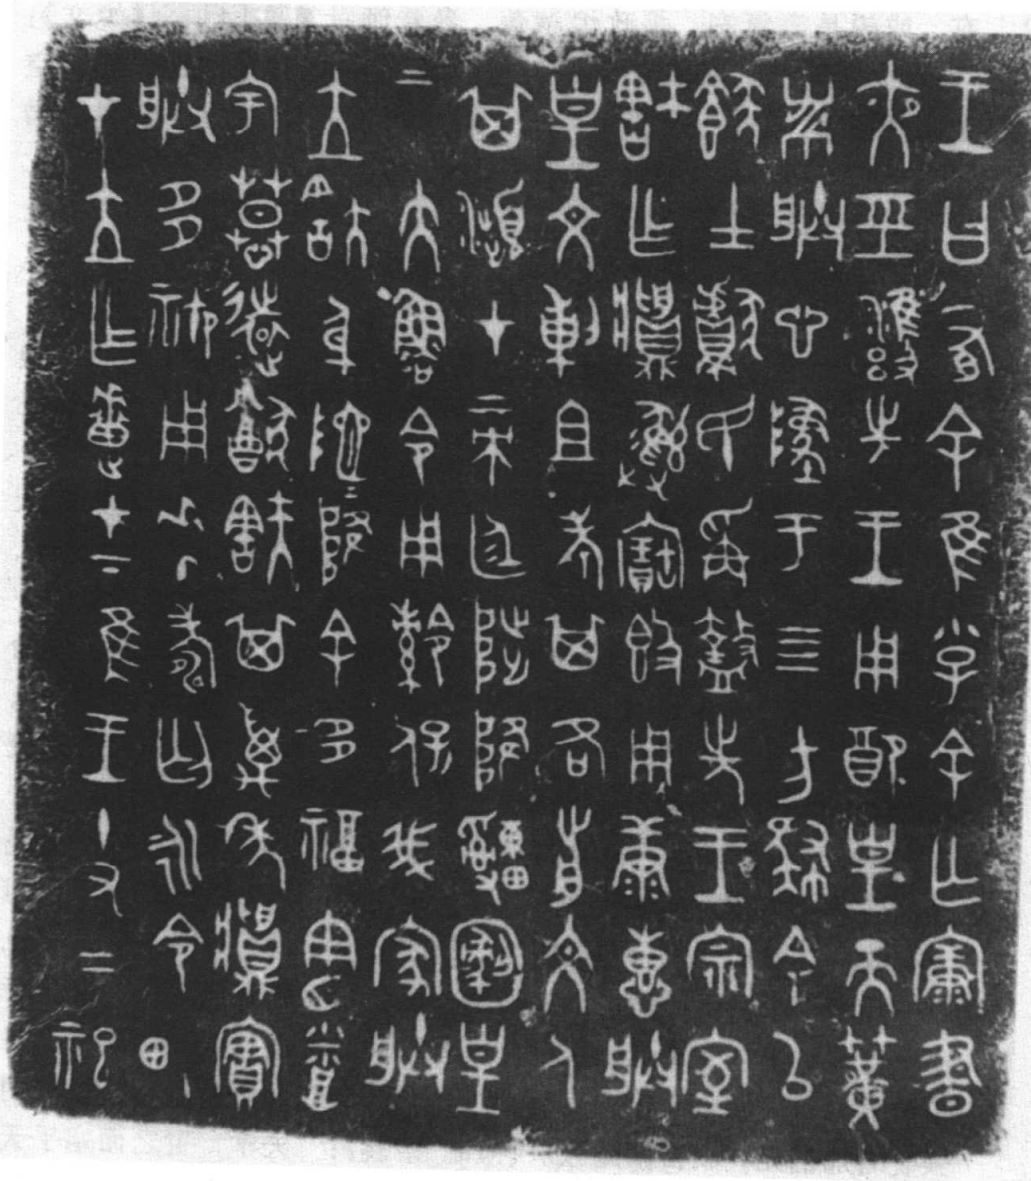 王曰有余隹小子余亡康晝
夜巠雝先王用配皇天簧
黹朕心墜于四方肆余以
士獻民爯盩先王宗室
㝬乍𩰬彝寶𣪘用康惠朕
皇文剌且考其各前文人
其瀕才帝廷陟降皇
帝大魯令用保我家朕
立㝬身阤=降余多福憲烝
宇慕遠猷㝬其萬年𩰬實
朕多禦用𠦪壽匄永令畯
才立乍疐才下隹王十又二祀